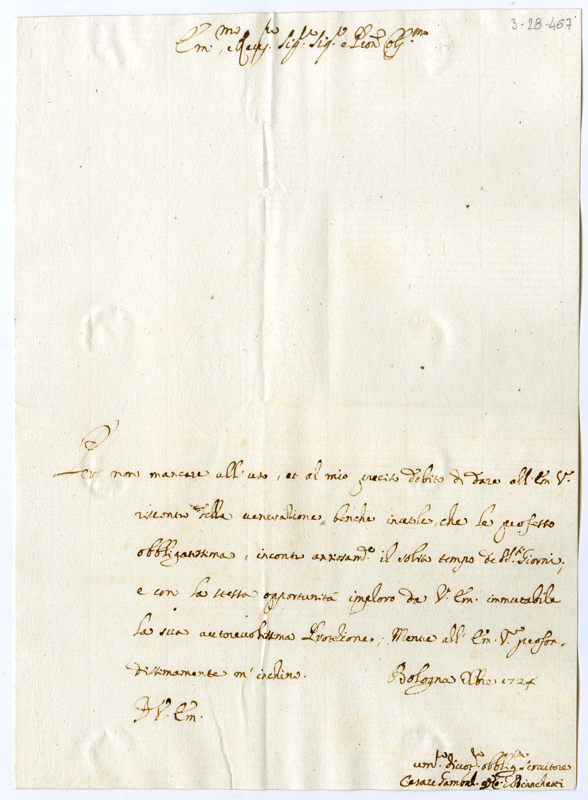 3-28-467
Em.mo e Rev. Sig.re Sig.re e Pron. 
Per non mancare all'uso, et al mio preciso debito di dare all'Em. V.
riscontro della venerazione, benche inutile, che le professo
obbligatissima, incontro ansosam.te il solito tempo de S.ti Giorni,
e con la stessa opportunità imploro da V. Em. immutabile
la sua autorevolissima Protezione; Mentre all'Em. V. profon-
disimamente m'inchino. Bologna 1724
D V. Em.
um. divot. obblig. servitore
Cesare Bianchetti